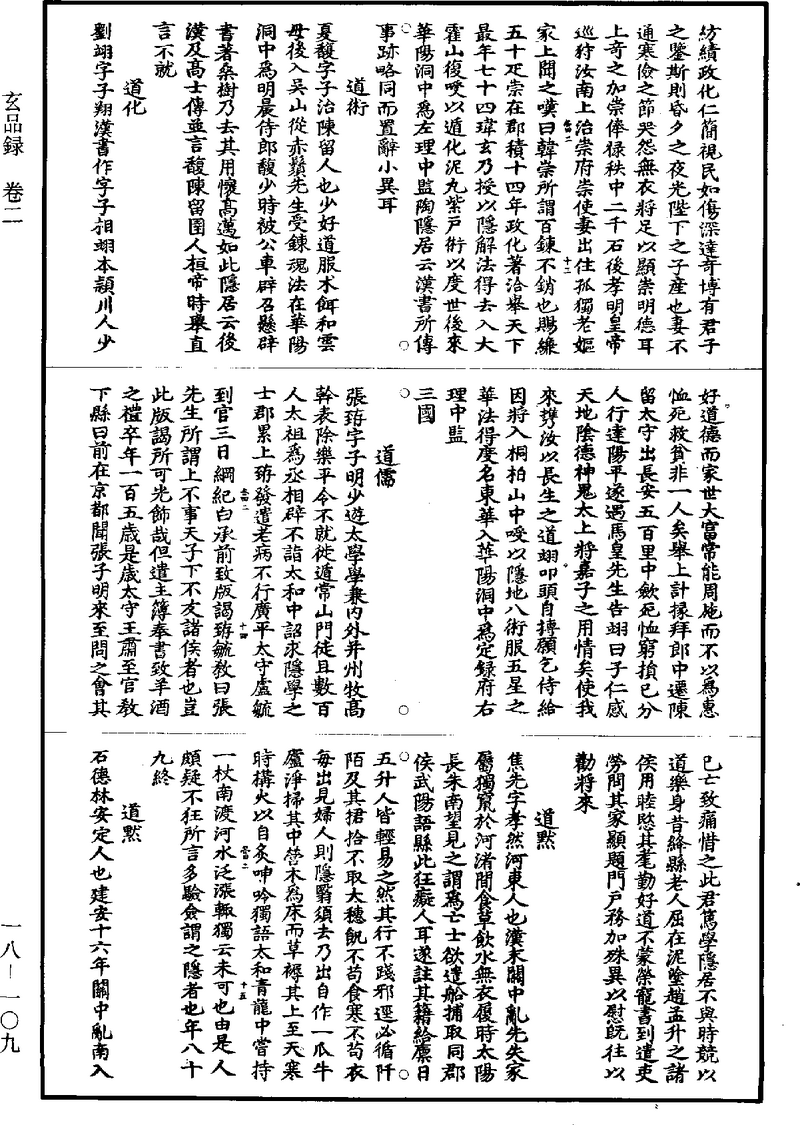 玄品録 卷二
一八—一〇九
紡績政化仁簡視民如傷深達奇博有君子
之鑒斯則昏夕之夜光陛下之子産也妻不
通寒儉之節哭怨無衣將足以顯崇明德耳
上奇之加崇俸祿秩中二千石後孝明皇帝
巡狩汝南上治崇府崇使妻出住孤獨老嫗
家上聞之嘆曰韓崇所謂百鍊不銷也賜縑
五十疋崇在郡積十四年政化著洽舉天下
最年七十四瑋玄乃授以隱解法得去入大
霍山復受以遁化泥丸紫戶術以度世後來
華陽洞中爲左理中監陶隱居云漢書所傳
事跡略同而置辭小異耳
道術
夏馥字子治陳留人也少好道服术餌和雲
母後入吳山從赤鬚先生受鍊魂法在華陽
洞中爲明晨侍郎馥少時被公車辟召懸辟
書著桑樹乃去其用懷高邁如此隱居云後
漢及高士傳並言馥陳留圉人桓帝時舉直
言不就
道化
劉翊字子翔漢書作字子相翊本頴川人少
好道德而家世大富常能周施而不以爲惠
恤死救貧非一人矣舉上計掾拜郎中遷陳
留太守出長安五百里中歛死恤窮損己分
人行達陽平遂遇馬皇先生告翊曰子仁感
天地陰德神鬼太上將嘉子之用情矣使我
來擕汝以長生之道翊叩頭自搏願乞侍給
因將入桐柏山中受以隱地八術服五星之
華法得度名東華入華陽洞中爲定録府右
理中監
三國
道儒
張臶字子明少遊太學學兼内外并州牧高
幹表除樂平令不就徙遁常山門徒且數百
人太祖爲丞相辟不詣太和中詔求隱學之
士郡累上臶發遣老病不行廣平太守盧毓
到官三日綱紀白承前致版謁臶毓敎曰張
先生所謂上不事天子下不友諸侯者也豈
此版謁所可光飾哉但遣主簿奉書致羊酒
之禮卒年一百五歲是歲太守王肅至官敎
下縣曰前在京都聞張子明來至問之會其
已亡致痛惜之此君篤學隱居不與時競以
道樂身昔絳縣老人屈在泥塗趙孟升之諸
侯用睦愍其耄勤好道不蒙榮寵書到遣吏
勞問其家顯題門戶務加殊異以慰旣往以
勸將來
道默
焦先字孝然河東人也漢末關中亂先失家
屬獨竄於河渚間食草飲水無衣履時太陽
長朱南望見之謂爲亡士欲遣船捕取同郡
侯武陽語縣此狂癡人耳遂註其籍給廩日
五升人皆輕易之然其行不踐邪逕必循阡
陌及其捃拾不取大穗飢不苟食寒不苟衣
每出見婦人則隱翳須去乃出自作一瓜牛
廬淨掃其中營木爲床而草褥其上至天寒
時搆火以自炙呻吟獨語太和青龍中嘗持
一杖南渡河水泛漲輒獨云未可也由是人
頗疑不狂所言多驗僉謂之隱者也年八十
九終
道默
石德林安定人也建安十六年關中亂南入